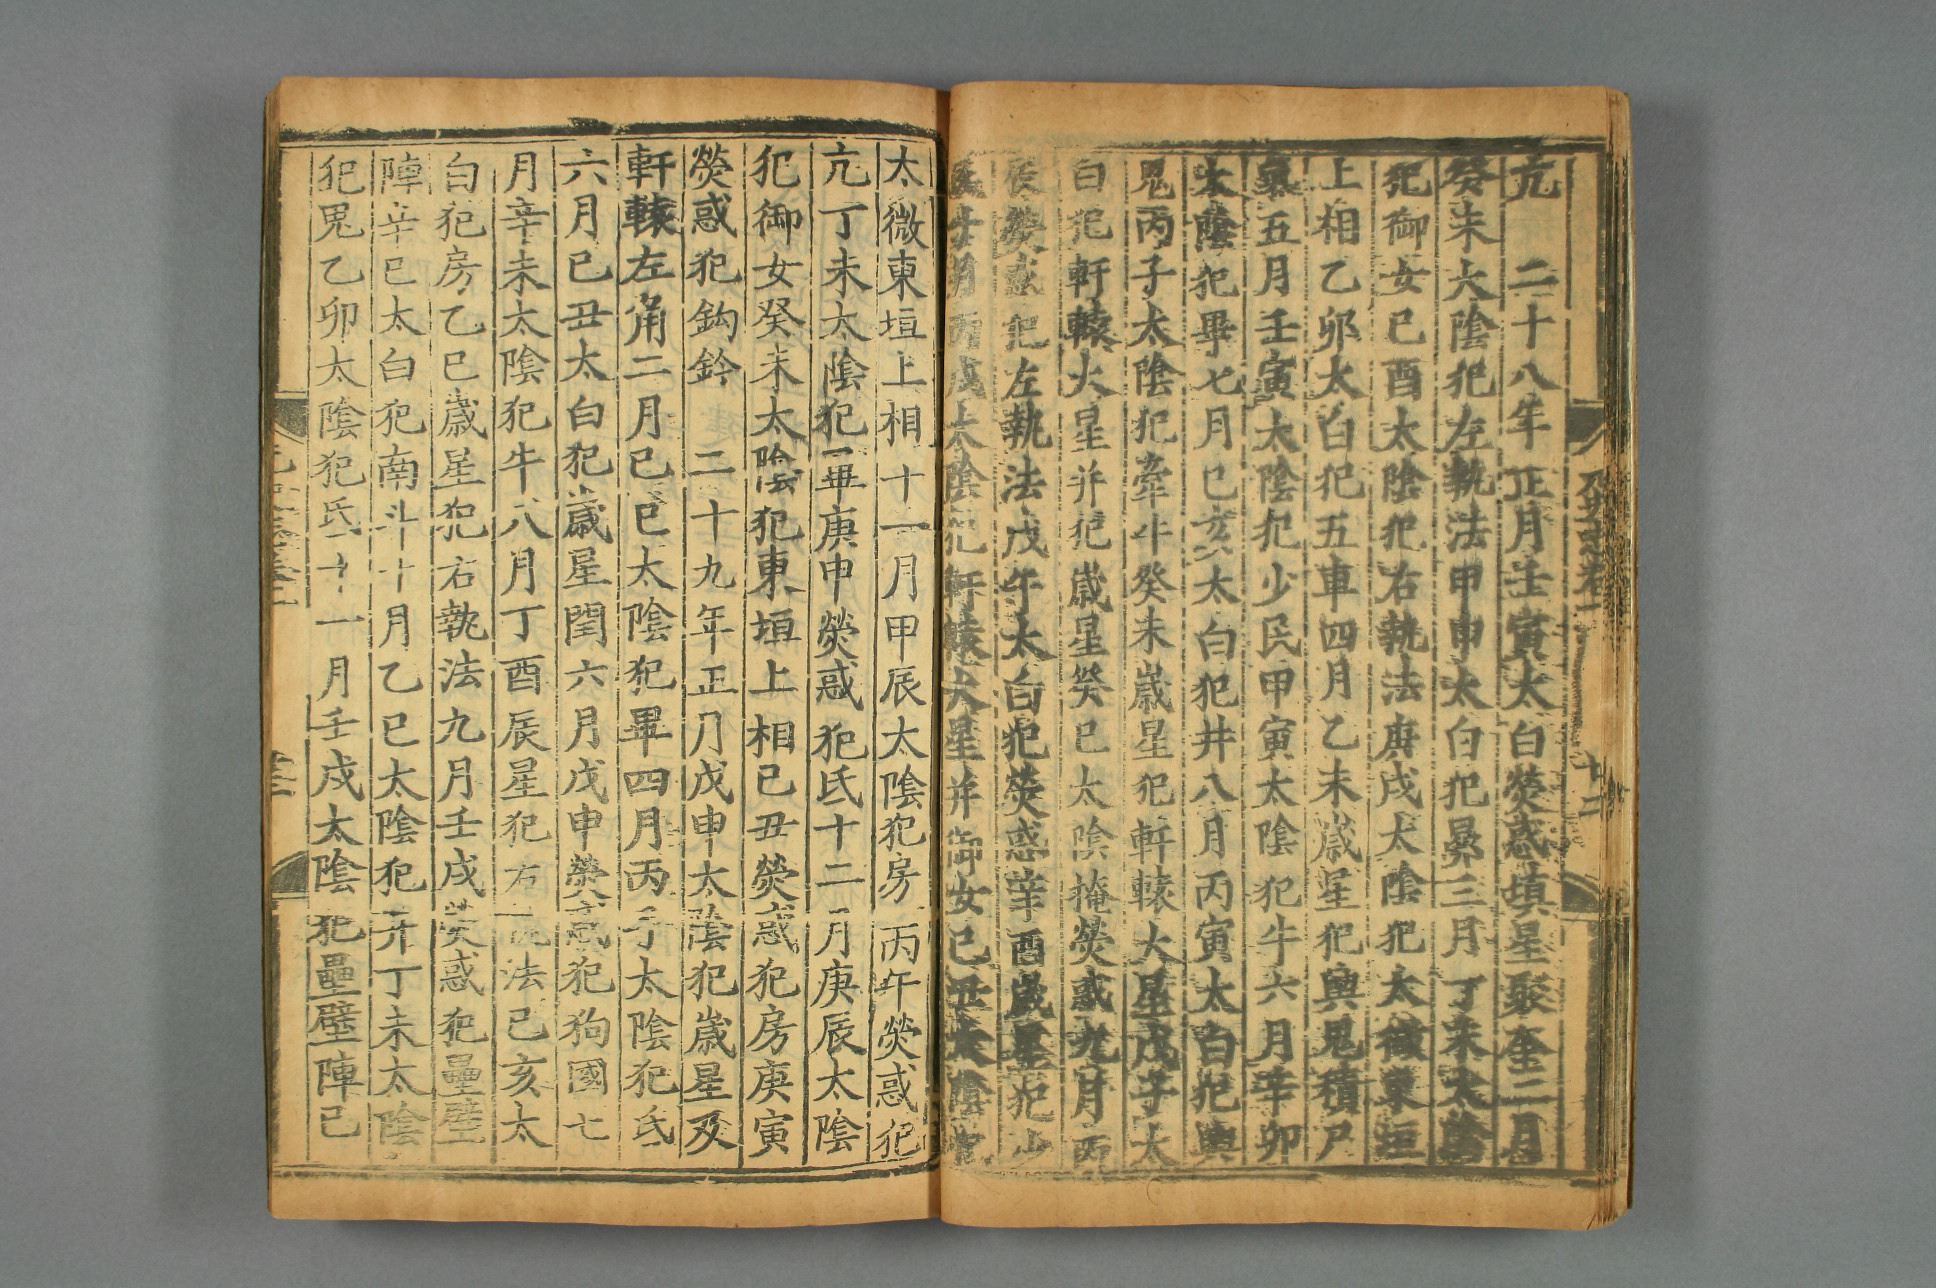 亢　二十八年正月壬寅太白熒惑填星聚奎二月
癸未太陰犯左執法甲申太白犯昴三月丁未太陰
犯御女己酉太陰犯右執法庚戌太陰犯太微東垣
上相乙卯太白犯五車四月乙未歲星犯輿鬼積尸
氣五月壬寅太陰犯少民甲寅太陰犯牛六月辛卯
太陰犯畢七月己亥太白犯井八月丙寅太白犯輿
鬼丙子太陰犯牽牛癸未歲星犯軒轅大星戊子太
白犯軒轅大星并犯歲星癸巳太陰掩熒惑九月丙
辰熒惑犯左執法戊午太白犯熒惑辛酉歲星犯少
丙戌太陰犯軒轅大星并御女己丑太陰
太微東垣上相十一月甲辰太陰犯房丙午熒惑犯
亢丁未太陰犯畢庚申熒惑犯氐十二月庚辰太陰
犯御女癸未太陰犯東垣上相己丑熒惑犯房庚寅
熒惑犯鈎鈐　二十九年正月戊申太陰犯歲星及
軒轅左角二月己巳太陰犯畢四月丙子太陰犯氐
六月己丑太白犯歲星閏六月戊申熒惑犯狗國七
月辛未太陰犯牛八月丁酉辰星犯右執法己亥太
白犯房乙巳歲星犯右執法九月壬戌熒惑犯壘壁
陣辛巳太白犯南斗十月乙巳太陰犯井丁未太陰
犯鬼乙卯太陰犯氐十一月壬戌太陰犯壘壁陣己
志卷一
十二